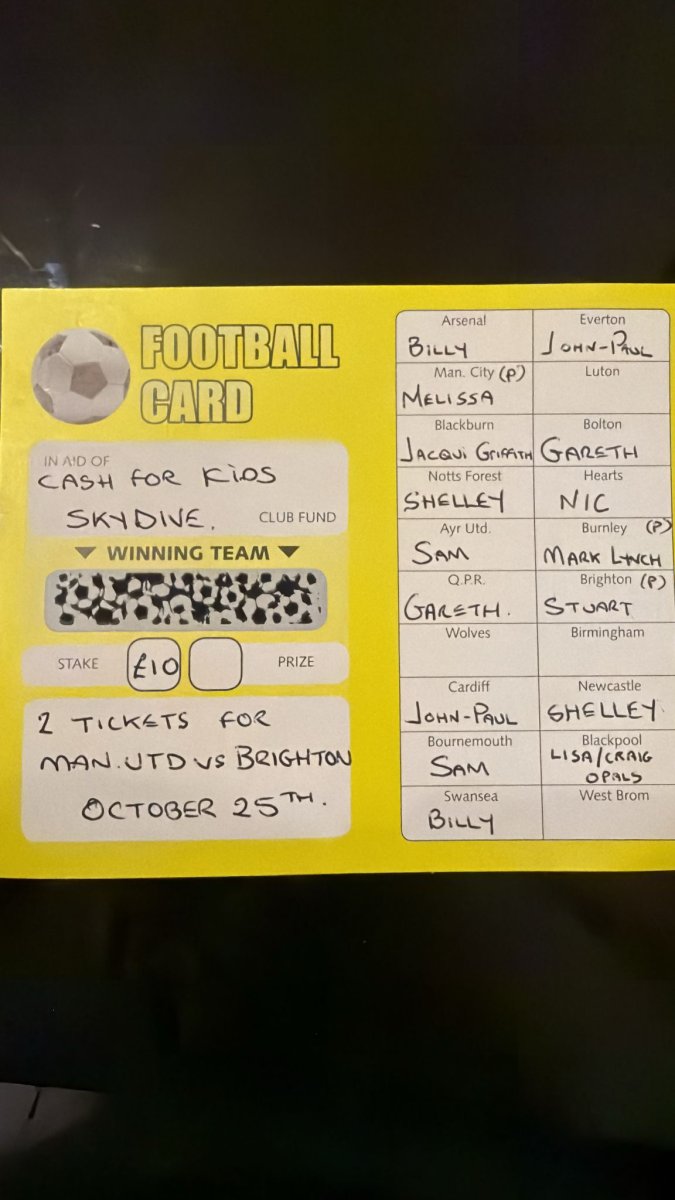 FOOTBALL
CARD
IN AID OF
CASH FOR KIDS
SKYDIVE. CLUB FUND
WINNING TEAM
STAKE £10 PRIZE
2 TICKETS FOR
MAN.UTD VS BRIGHTON
OCTOBER 25TH.
Arsenal Everton
BILLY JOHN-PAUL
Man. City (P) Luton
MELISSA
Blackburn Bolton
JACQUI GRIFFITH GARETH
Notts Forest Hearts
SHELLEY NIC
Ayr Utd. Burnley (P)
SAM MARK LYNCH
Q.P.R. Brighton (P)
GARETH. STUART
Wolves Birmingham
Cardiff Newcastle
JOHN-PAUL SHELLEY.
Bournemouth Blackpool
SAM LISA/CRAIG
OPALS
Swansea West Brom
BILLY